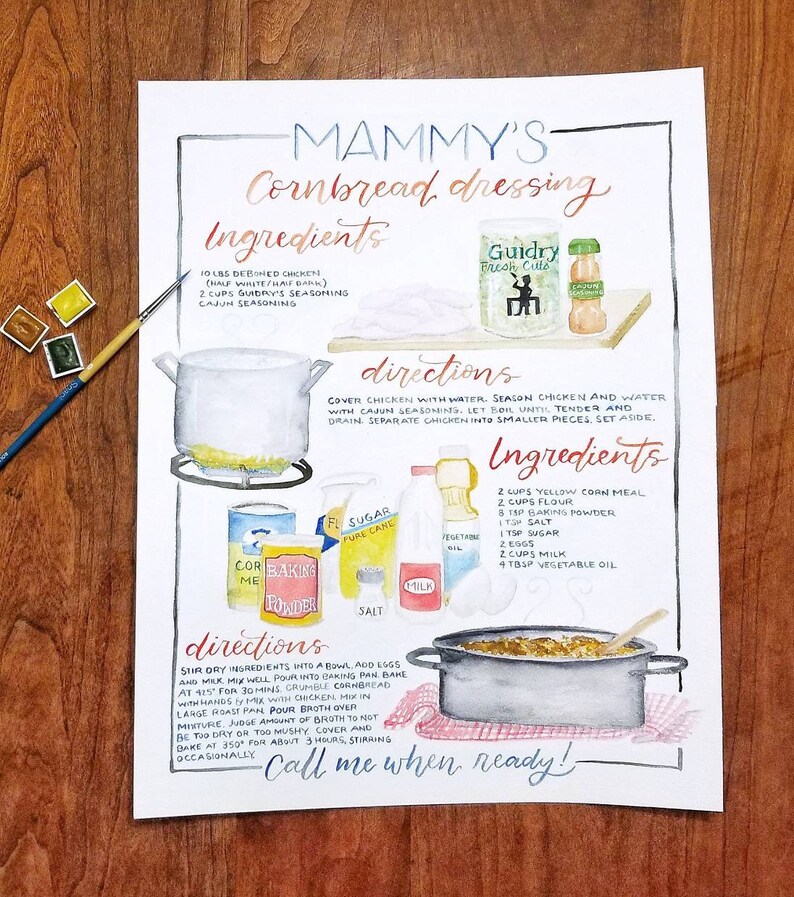 MAMMY'S
Cornbread dressing
Ingredients
10 LBS DEBONED CHICKEN
(HALF WHITE/HALF DARK)
2 CUPS GUIDRY'S SEASONING
CAJUN SEASONING
Guidry
Fresh Cuts
CAJUN
SEASONING
directions
COVER CHICKEN WITH WATER. SEASON CHICKEN AND WATER
WITH CAJUN SEASONING. LET BOIL UNTIL TENDER AND
DRAIN. SEPARATE CHICKEN INTO SMALLER PIECES. SET ASIDE.
Ingredients
2 CUPS YELLOW CORN MEAL
2 CUPS FLOUR
8 TSP BAKING POWDER
1 TSP SALT
1 TSP SUGAR
2 EGGS
2 CUPS MILK
4 TBSP VEGETABLE OIL
COR
ME
BAKING
POWDER
FL
SUGAR
PURE CANE
SALT
MILK
VEGETABLE
OIL
directions
STIR DRY INGREDIENTS INTO A BOWL. ADD EGGS
AND MILK. MIX WELL. POUR INTO BAKING PAN. BAKE
AT 425° FOR 30 MINS. CRUMBLE CORNBREAD
WITH HANDS & MIX WITH CHICKEN. MIX IN
LARGE ROAST PAN. POUR BROTH OVER
MIXTURE. JUDGE AMOUNT OF BROTH TO NOT
BE TOO DRY OR TOO MUSHY. COVER AND
BAKE AT 350° FOR ABOUT 3 HOURS, STIRRING
OCCASIONALLY.
Call me when ready!